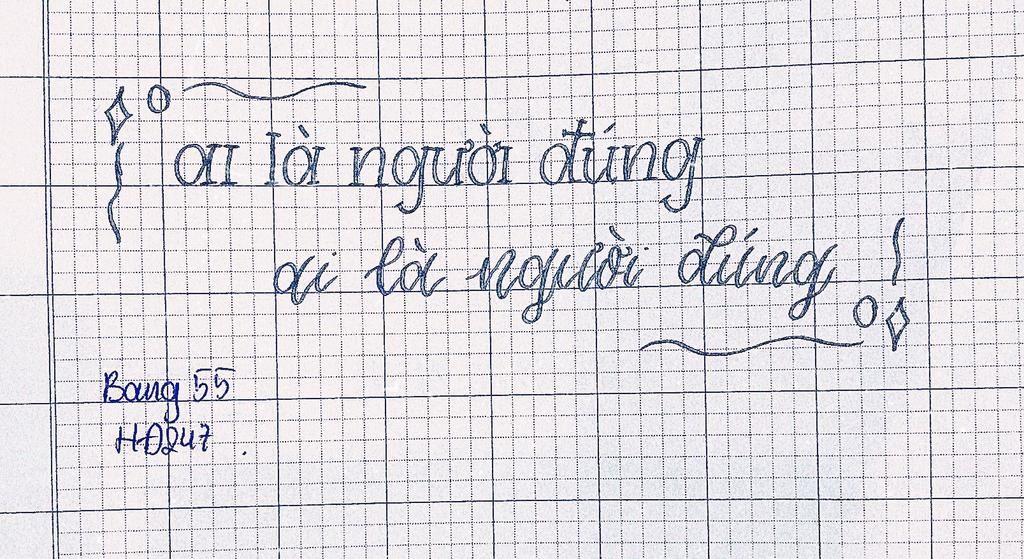 ai là người đúng
ai là người đúng
Bang 55
HĐ247.